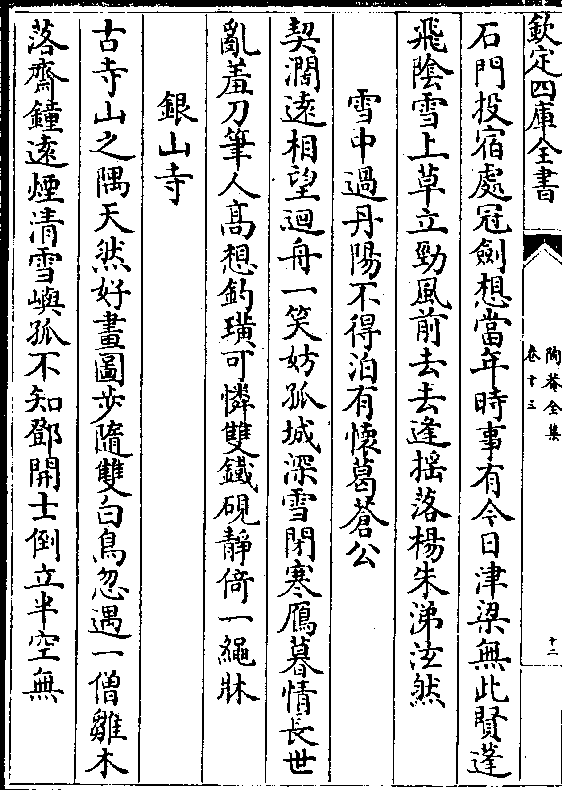 欽定四庫全書
陶菴全集
卷十三
十二
石門投宿處冠劍想當年時事有今日津梁無此賢蓬
飛陰雪上草立勁風前去去逢揺落楊朱涕泫然
雪中過丹陽不得泊有懷葛蒼公
契濶遠相望迴舟一笑妨孤城深雪閉寒鴈暮情長世
亂羞刀筆人髙想釣璜可憐雙鐵硯靜倚一繩牀
銀山寺
古寺山之隅天然好畫圖步隨雙白鳥忽遇一僧雛木
落齋鐘遠煙清雪嶼孤不知鄧開士倒立半空無